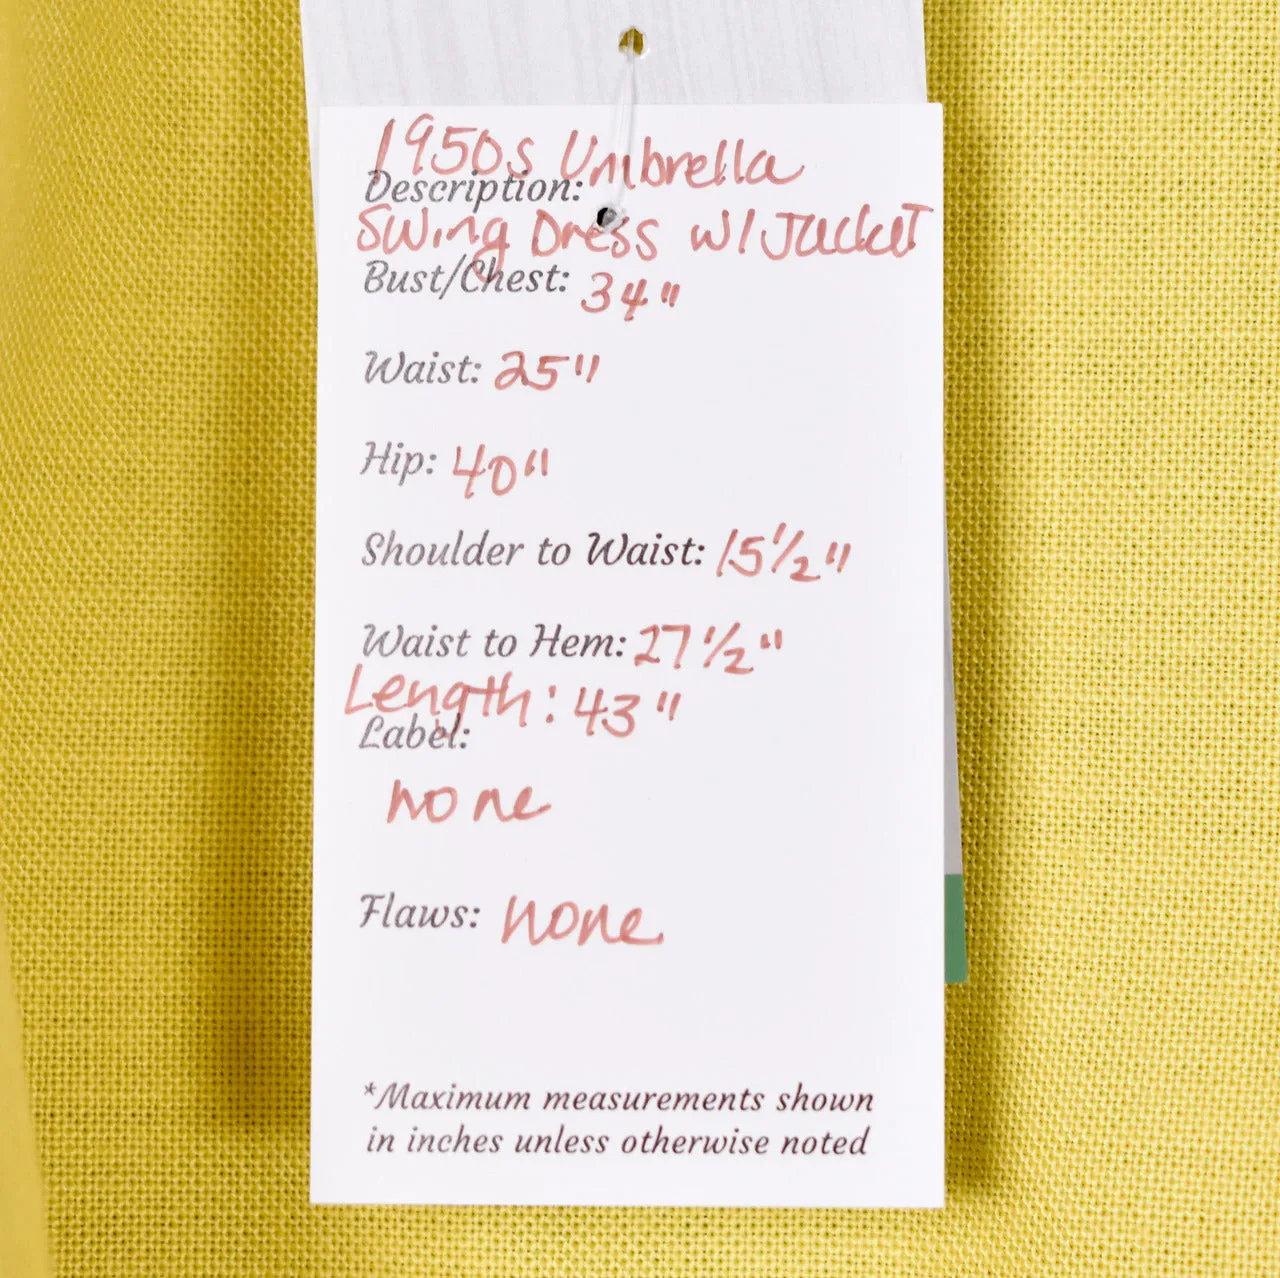 1950s Umbrella
Description:
Swing Dress w/Jacket
Bust/Chest: 34"
Waist: 25"
Hip: 40"
Shoulder to Waist: 15 1/2"
Waist to Hem: 27 1/2"
Length: 43"
Label:
none
Flaws: none
*Maximum measurements shown
in inches unless otherwise noted